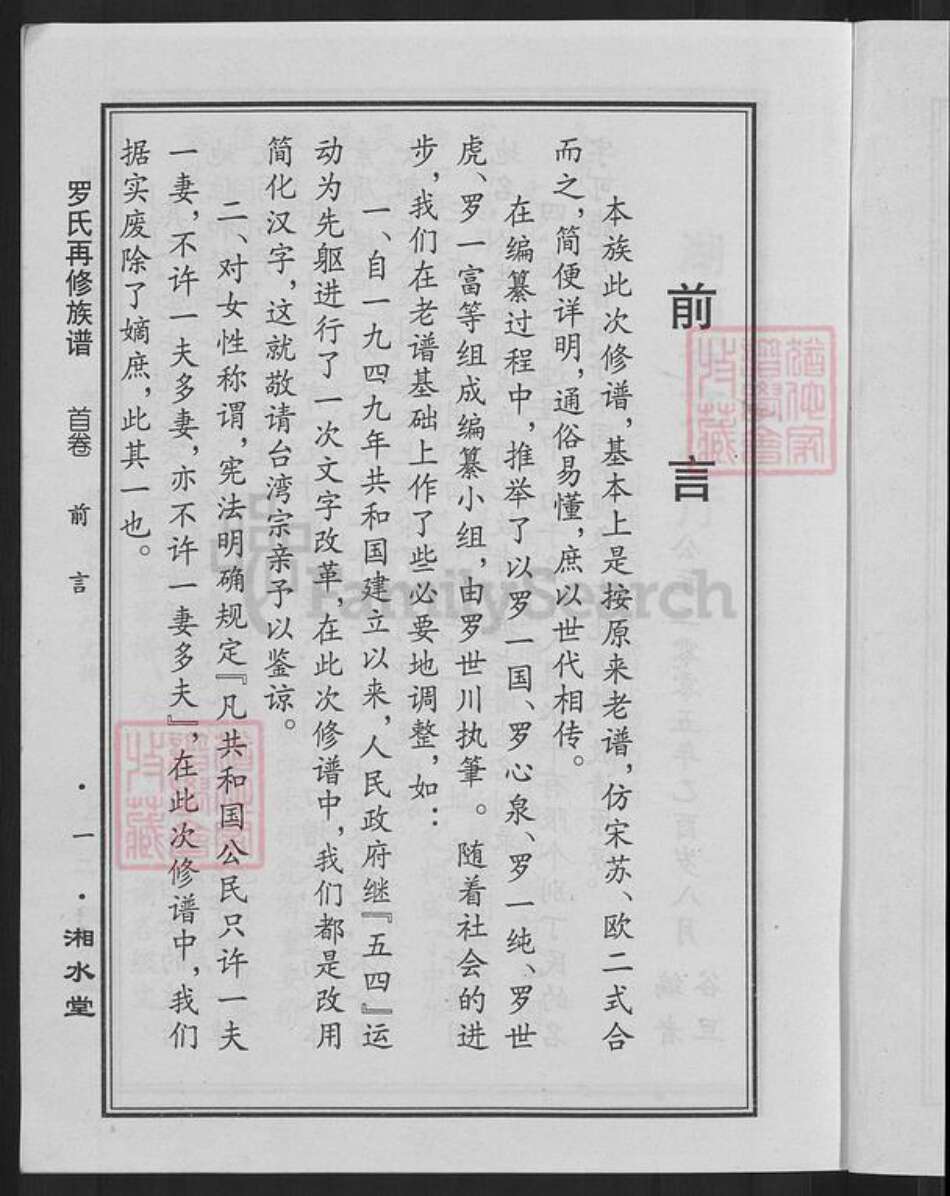 前言
本族此次修谱，基本上是按原来老谱，仿宋苏、欧二式合
而之，简便详明，通俗易懂，庶以世代相传。
在编纂过程中，推举了以罗一国、罗心泉、罗一纯、罗世
虎、罗一富等组成编纂小组，由罗世川执筆。随着社会的进
步，我们在老谱基础上作了些必要地调整，如：
一、自一九四九年共和国建立以来，人民政府继『五四』运
动为先躯进行了一次文字改革，在此次修谱中，我们都是改用
简化汉字，这就敬请台湾宗亲予以鉴谅。
二、对女性称谓，宪法明确规定『凡共和国公民只许一夫
一妻，不许一夫多妻，亦不许一妻多夫』，在此次修谱中，我们
据实废除了嫡庶，此其一也。
罗氏再修族谱 首卷 前言 ·一· 湘水堂
FamilySearch